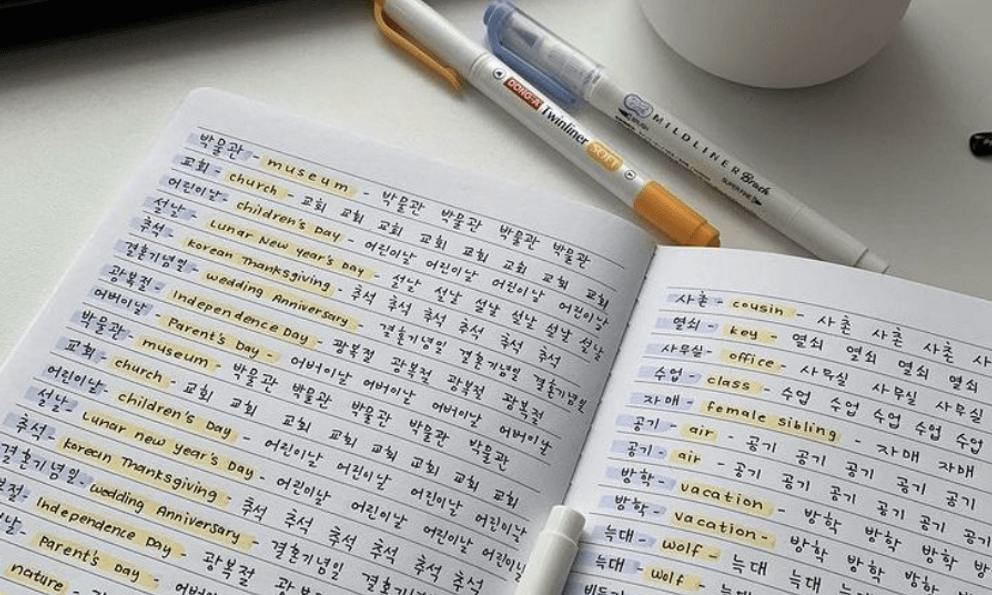 DONG-A Twinliner SOFT
MILDLINER Brush
SUPER FINE
박물관 - museum - 박물관 박물관 박물관 박물관
교회 - church - 교회 교회 교회 교회 교회 교회 교회
어린이날 - children's Day - 어린이날 어린이날 어린이날 어린이날
설날 - Lunar New year's Day - 설날 설날 설날 설날 설날 설날
추석 - korean Thanksgiving - 추석 추석 추석 추석 추석 추석
결혼기념일 - wedding Anniversary - 결혼기념일 결혼기념일 결혼기념일
광복절 - Independence Day - 광복절 광복절 광복절 광복절
어버이날 - Parent's Day - 어버이날 어버이날 어버이날 어버이날
박물관 - museum - 박물관 박물관 박물관 박물관
교회 - church - 교회 교회 교회 교회 교회 교회 교회
어린이날 - children's Day - 어린이날 어린이날 어린이날 어린이날
설날 - Lunar new year's Day - 어린이날 어린이날 어린이날
추석 - korean Thanksgiving - 추석 추석 추석 추석 추석
결혼기념일 - wedding Anniversary - 결혼기념일 결혼기념일
Independence Day - 광복절
Parent's Day -
nature -
사촌 - cousin - 사촌 사촌 사촌
열쇠 - key - 열쇠 열쇠 열쇠 열쇠
사무실 - office - 사무실 사무실 사무실
수업 - class - 수업 수업 수업 수업 수업
자매 - female sibling - 자매 자매
공기 - air - 공기 공기 공기 공기 공기
공기 - air - 공기 공기 공기 공기 공기
방학 - vacation - 방학 방학 방학
방학 - vacation - 방학 방학 방학
늑대 - wolf - 늑대 늑대 늑대 늑대
늑대 - wolf - 늑대 늑대